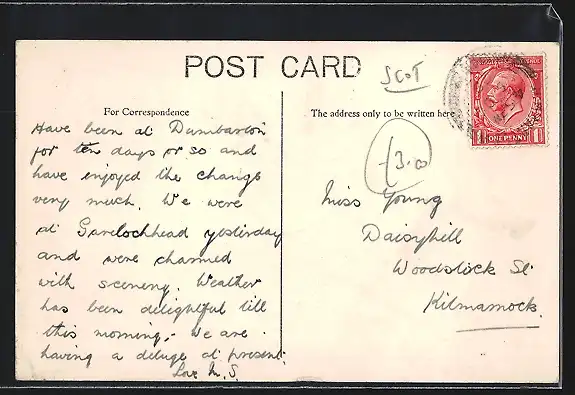 POST CARD
SCOT
For Correspondence
The address only to be written here
Have been at Dumbarton
for ten days or so and
have enjoyed the change
very much. We were
at Garelochhead yesterday
and were charmed
with scenery. Weather
has been delightful till
this morning. We are
having a deluge at present.
Love M. S.
3.0
Miss Young
Daisyhill
Woodstock St.
Kilmarnock.
ONE PENNY
1 1